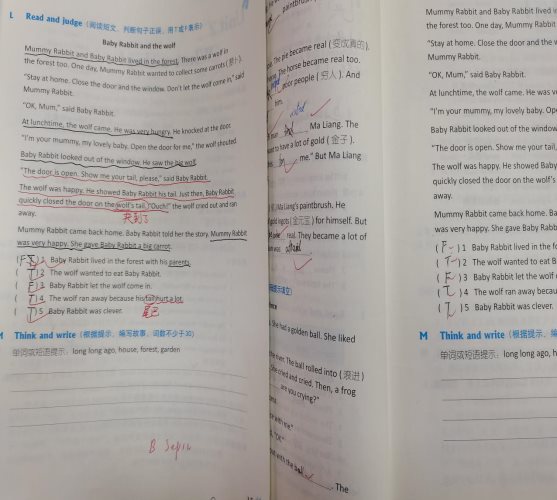 L Read and judge (阅读短文,判断句子正误,用T或F表示)
Baby Rabbit and the wolf
Mummy Rabbit and Baby Rabbit lived in the forest. There was a wolf in
the forest too. One day, Mummy Rabbit wanted to collect some carrots
"Stay at home. Close the door and the window. Don't let the wolf come in," said
Mummy Rabbit.
"OK, Mum," said Baby Rabbit.
At lunchtime, the wolf came. He was very hungry. He knocked at the door.
"I'm your mummy, my lovely baby. Open the door for me," the wolf shouted.
Baby Rabbit looked out of the window. He saw the big wolf.
"The door is open. Show me your tail, please," said Baby Rabbit.
The wolf was happy. He showed Baby Rabbit his tail. Just then, Baby Rabbit
quickly closed the door on the wolf's tail. "Ouch!" the wolf cried out and ran
away.
夹到了
Mummy Rabbit came back home. Baby Rabbit told her the story. Mummy Rabbit
was very happy. She gave Baby Rabbit a big carrot.
(F) 1 Baby Rabbit lived in the forest with his parents.
(T) 2 The wolf wanted to eat Baby Rabbit.
(F) 3 Baby Rabbit let the wolf come in.
(T) 4 The wolf ran away because his tail hurt a lot.
尾巴
(T) 5 Baby Rabbit was clever.
M Think and write (根据提示,编写故事,词数不少于30)
单词或短语提示:long long ago, house, forest, garden
B
paintbrush
The pie became real (变成真的).
The horse became real too.
poor people (穷人). And
him.
Ma Liang. The
to have a lot of gold (金子).
me." But Ma Liang
Ma Liang's paintbrush. He
gold ingots (金元宝) for himself. But
real. They became a lot of
was afraid
She had a golden ball. She liked
the river. The ball rolled into (滚进)
She cried and cried. Then, a frog
are you crying?"
with me."
"OK."
out with the ball
The
Mummy Rabbit and Baby Rabbit lived in
the forest too. One day, Mummy Rabbit
"Stay at home. Close the door and the w
Mummy Rabbit.
"OK, Mum," said Baby Rabbit.
At lunchtime, the wolf came. He was ve
"I'm your mummy, my lovely baby. Op
Baby Rabbit looked out of the window
"The door is open. Show me your tail,
The wolf was happy. He showed Baby
quickly closed the door on the wolf's
away.
Mummy Rabbit came back home. Ba
was very happy. She gave Baby Rabb
(F) 1 Baby Rabbit lived in the fo
(T) 2 The wolf wanted to eat B
(F) 3 Baby Rabbit let the wolf
(T) 4 The wolf ran away becau
(T) 5 Baby Rabbit was clever.
M Think and write (根据提示
单词或短语提示:long long ago, h